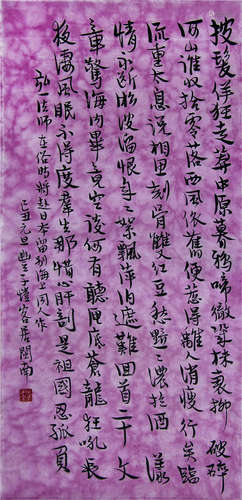 披髮佯狂走莽中原暮鴉啼徹幾株衰柳破碎
河山誰收拾零落西風依舊便惹得離人消瘦行矣臨
流重太息說相思刻骨雙紅豆愁黯黯濃於酒 漾
情不斷淞波溜恨年來絮飄萍泊遮難回首二十文
章驚海內畢竟空談何有聽匣底蒼龍狂吼長
夜淒風眠不得度羣生那惜心肝剖是祖國忍孤負
弘一法師在俗時將赴日本留別海上同人作
己丑元旦豐子愷客居閩南